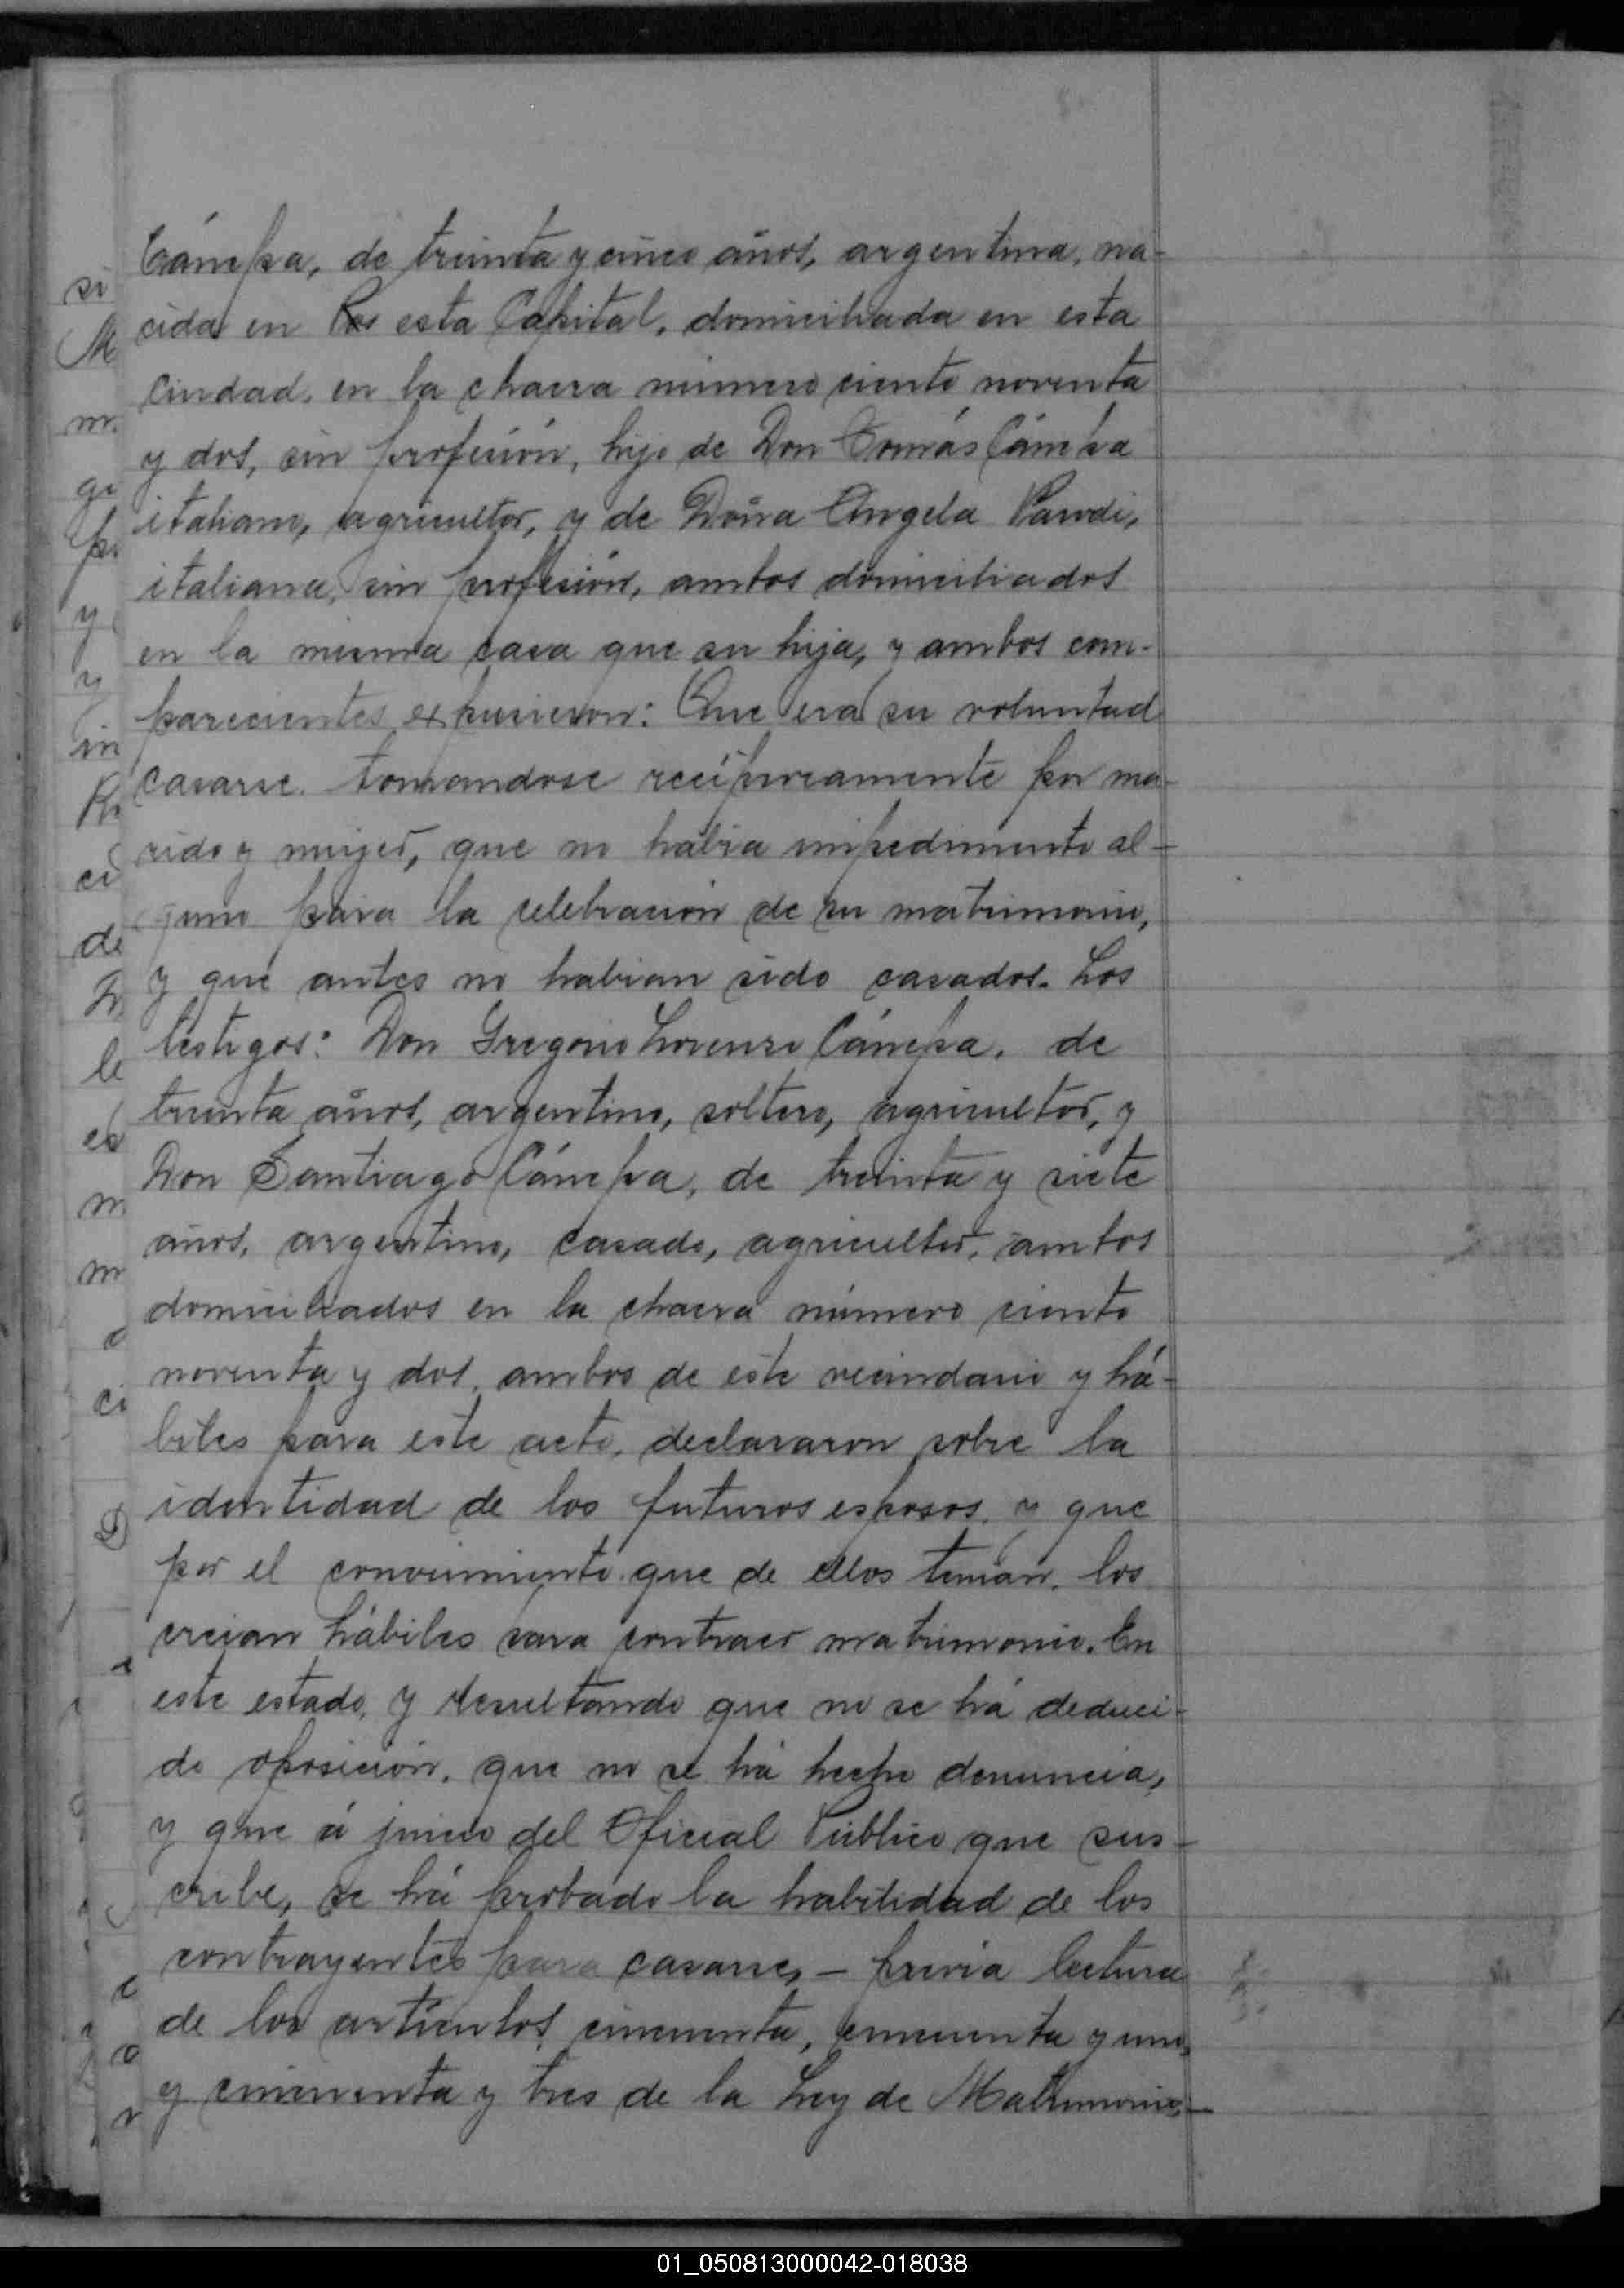 Cánepa, de treinta y cinco años, argentina, na-
cida en esta Capital, domiciliada en esta
Ciudad, en la chacra número ciento noventa
y dos, sin profesión, hija de Don Tomás Cánepa
italiano, agricultor, y de Doña Angela Parodi,
italiana, sin profesión, ambos domiciliados
en la misma casa que su hija, y ambos com-
parecientes expusieron: Que era su voluntad
casarse tomandose recíprocamente por ma-
rido y mujer, que no habia impedimento al-
guno para la celebración de su matrimonio,
y que antes no habian sido casados. Los
testigos: Don Gregorio Lorenzo Cánepa, de
treinta años, argentino, soltero, agricultor, y
Don Santiago Cánepa, de treinta y siete
años, argentino, casado, agricultor, ambos
domiciliados en la chacra número ciento
noventa y dos, ambos de este vecindario y há-
biles para este acto, declararon sobre la
identidad de los futuros esposos, y que
por el conocimiento que de ellos tenian, los
creian hábiles para contraer matrimonio. En
este estado, y resultando que no se há deduci-
do oposición, que no se há hecho denuncia,
y que á juicio del Oficial Público que sus-
cribe, se há probado la habilidad de los
contrayentes para casarse, - previa lectura
de los artículos cincuenta, cincuenta y uno,
y cincuenta y tres de la Ley de Matrimonio,-
si
M
m
ge
y
y
in
ci
de
le
es
m
m
o
ci
D
01_050813000042-018038